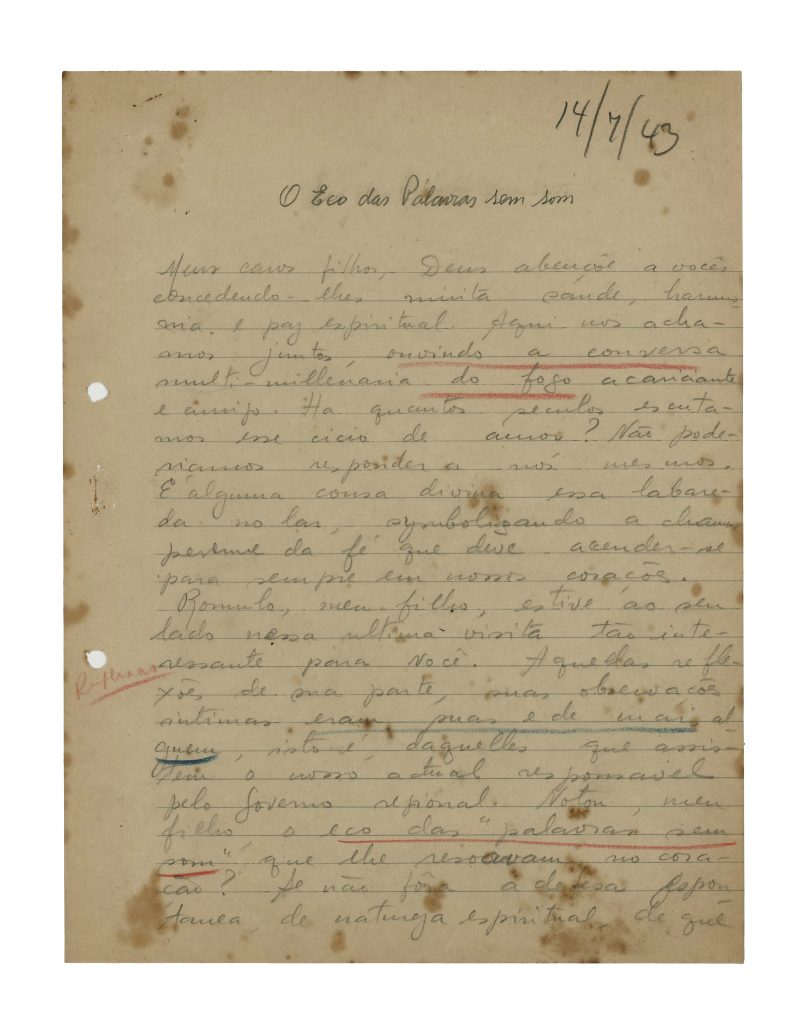 14/7/43
O Eco das Palavras sem som
Meus caros filhos, Deus abençôe a vocês
concedendo-lhes muita saúde, harmo-
nia e paz espiritual. Aqui nos acha-
mos juntos, ouvindo a conversa
multi-millenaria do fogo acariciante
e amigo. Ha quantos seculos escuta-
mos esse cicio de amor? Não pode-
riamos responder a nós mesmos.
É alguma cousa divina essa labare-
da no lar, symbolizando a chama
perenne da fé que deve acender-se
para sempre em nossos corações.
Romulo, meu filho, estive ao seu
lado nessa ultima visita tão inte-
ressante para você. Aquellas refle-
xões de sua parte, suas observações
intimas eram suas e de mais al
guem, isto é, daquelles que assis-
tem o nosso actual responsavel
pelo Governo regional. Notou, meu
filho, o eco das "palavras sem
som" que lhe resoavam no cora-
ção? Se não fôra a defesa espon
tanea, de natureza espiritual, de que